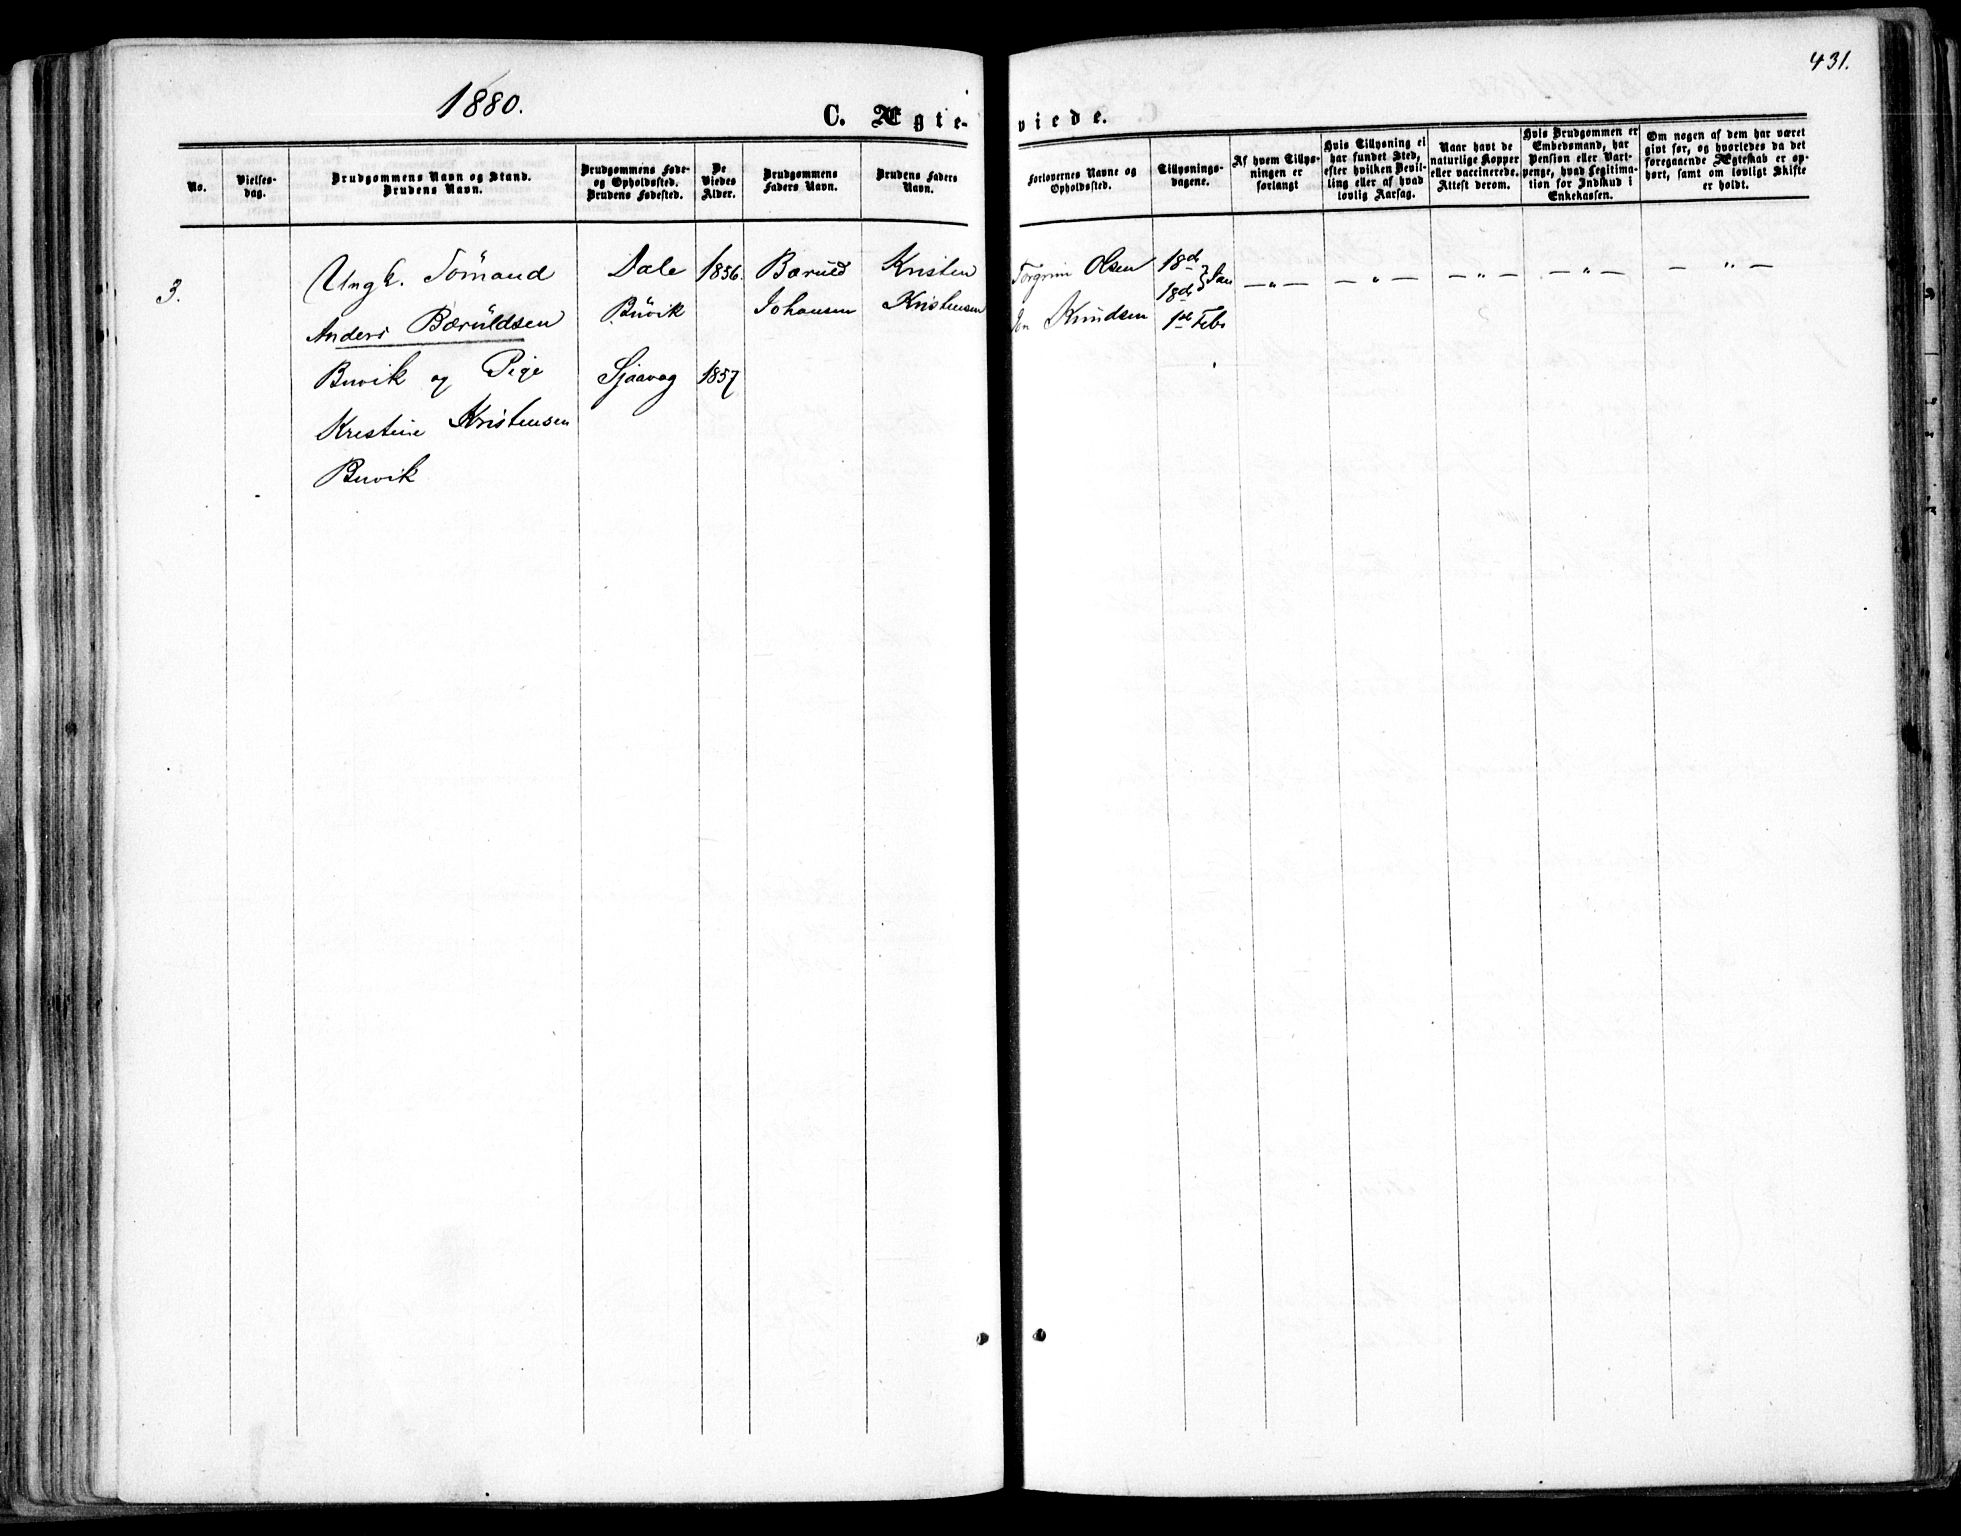 431.
1880.
C. Ægte-
viede.
No.
Vielses-
dag.
Brudgommens Navn og Stand.
Brudens Navn.
Brudgommens Føde-
og Opholdssted.
Brudens Fødested.
De
Viedes
Alder.
Brudgommens
Faders Navn.
Brudens Faders
Navn.
Forlovernes Navne og
Opholdssted.
Tillysnings-
dagene.
Af hvem Tillys-
ningen er
forlangt
Hvis Tillysning ei
har fundet Sted,
efter hvilken Bevil-
ling eller af hvad
lovlig Aarsag.
Naar havt de
naturlige Kopper
eller vaccinerede.
Attest derom.
Hvis Brudgommen er
Embedsmand, har
Pension eller Vart-
penge, hvad Legitima-
tion for Indskud i
Enkekassen.
Om nogen af dem har været
givt før, og hvorledes da det
foregaaende Ægteskab er op-
hørt, samt om lovligt Skifte
er holdt.
3.
Ungk. Sömand
Anders Bæruldsen
Buvik og Pige
Kristine Kristensen
Buvik
Dale
Buvik
Sjaavag
1856.
1857
Bæruld
Johansen
Kristen
Kristensen
Torgrim Olsen
Jon Knudsen
18de
18de } Jan
1ste Feb.
— „ —
— „ —
— „ —
— „ —
— „ —